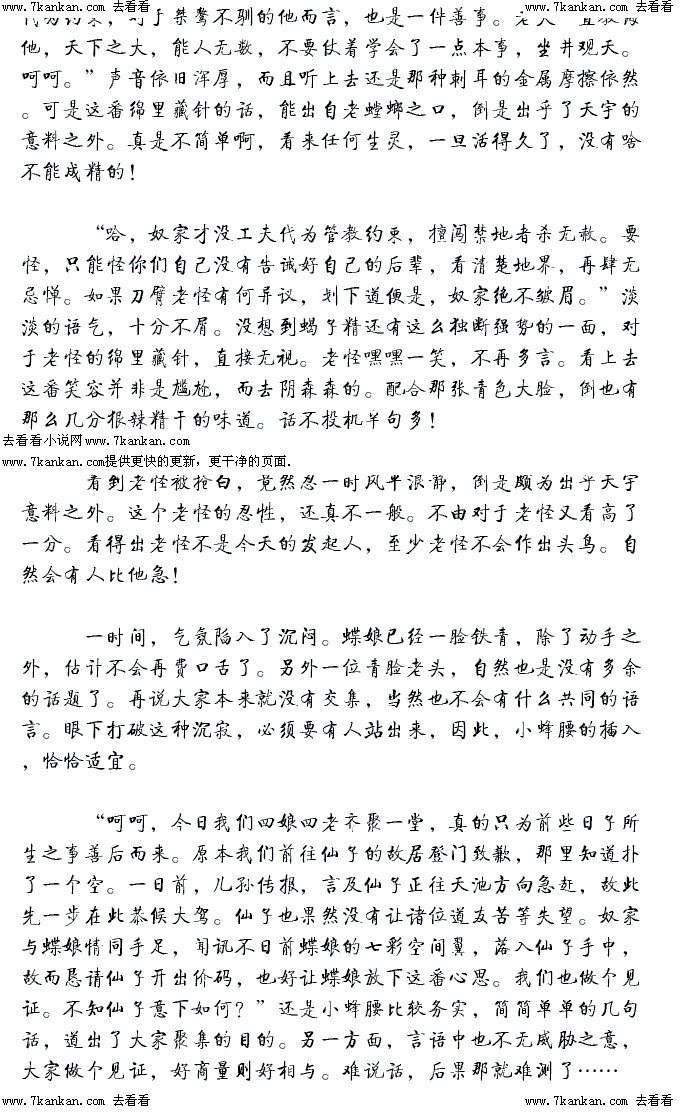 www.7kankan.com 去看看 www.7kankan.com 去看看 www.7kankan.com 去看看
代为约束，对于桀骜不驯的他而言，也是一件善事。老夫一直教诲
他，天下之大，能人无数，不要仗着学会了一点本事，坐井观天。
呵呵。”声音依旧浑厚，而且听上去还是那种刺耳的金属摩擦依然
。可是这番绵里藏针的话，能出自老螳螂之口，倒是出乎了天宇的
意料之外。真是不简单啊，看来任何生灵，一旦活得久了，没有啥
不能成精的！
“哈，奴家才没工夫代为管教约束，擅闯禁地者杀无赦。要
怪，只能怪你们自己没有告诫好自己的后辈，看清楚地界，再肆无
忌惮。如果刀臂老怪有何异议，划下道便是，奴家绝不皱眉。”淡
淡的语气，十分不屑。没想到蝎子精还有这么独断强势的一面，对
于老怪的绵里藏针，直接无视。老怪嘿嘿一笑，不再多言。看上去
这番笑容并非是尴尬，而去阴森森的。配合那张青色大脸，倒也有
那么几分狠辣精干的味道。话不投机半句多！
去看看小说网www.7kankan.com
www.7kankan.com提供更快的更新，更干净的页面.
看到老怪被抢白，竟然忍一时风平浪静，倒是颇为出乎天宇
意料之外。这个老怪的忍性，还真不一般。不由对于老怪又看高了
一分。看得出老怪不是今天的发起人，至少老怪不会作出头鸟。自
然会有人比他急！
一时间，气氛陷入了沉闷。蝶娘已经一脸铁青，除了动手之
外，估计不会再费口舌了。另外一位青脸老头，自然也是没有多余
的话题了。再说大家本来就没有交集，当然也不会有什么共同的语
言。眼下打破这种沉寂，必须要有人站出来，因此，小蜂腰的插入
，恰恰适宜。
“呵呵，今日我们四娘四老齐聚一堂，真的只为前些日子所
生之事善后而来。原本我们前往仙子的故居登门致歉，那里知道扑
了一个空。一日前，儿孙传报，言及仙子正往天池方向急赶，故此
先一步在此恭候大驾。仙子也果然没有让诸位道友苦等失望。奴家
与蝶娘情同手足，闻讯不日前蝶娘的七彩空间翼，落入仙子手中，
故而恳请仙子开出价码，也好让蝶娘放下这番心思。我们也做个见
证。不知仙子意下如何？”还是小蜂腰比较务实，简简单单的几句
话，道出了大家聚集的目的。另一方面，言语中也不无威胁之意，
大家做个见证，好商量则好相与。难说话，后果那就难测了……
www.7kankan.com 去看看 www.7kankan.com 去看看 www.7kankan.com 去看看